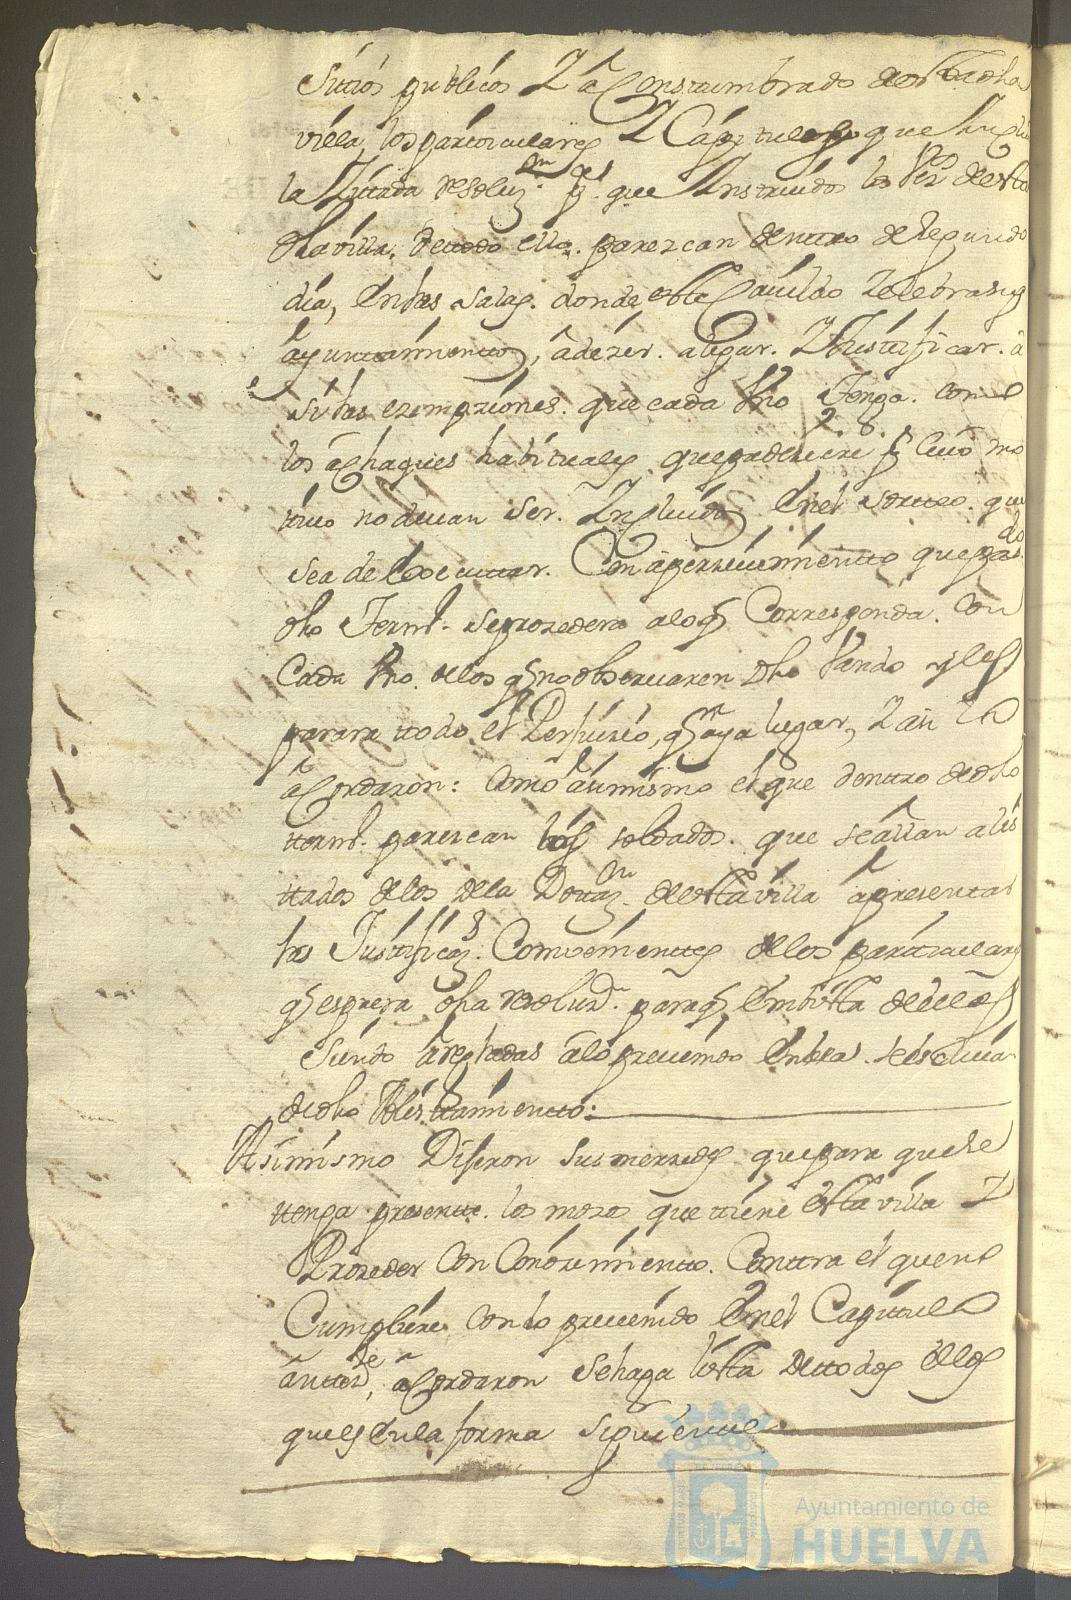 sittios publicos Y acostumbrados de esta dha
villa, los particulares Y Capitulos que Incluie
la Zitada resoluzn. pa. que Instruidos los vezos de esta
dha villa, de todo ello. parezcan dentro de segundo
dia, en las salas. donde este Cavildo Zelebra sus
ayuntamientos, â dezir. alegar. Y Justificar. a
si las exempziones. que cada Vno Tenga. como
los achaques habituales que padeziere pr. Cuio mo
tivo no devan ser. Yncluidos en el sorteo. que
sea de Executar. Con apercevimiento que pasado
dho Termo. se prozedera a lo q Corresponda. Con
Cada Vno de los q no observaren dho Vando y les
parara todo el Perjuizio, q aya lugar, Y asi lo
acordaron: Como asimismo el que dentro de dho
termo. parezcan los soldados. que se allan alis
tados de los de la Dotazn. de esta villa â presentar
las Justificazs. Combenientes de los particulares
q espresa dha resoluzn. para q en vista de ellas
siendo arregladas a lo prevenido en ella. se escluian
de dho Alistamiento:
Asimismo Dijeron sus merzedes que para que se
tenga presente. los mozos que tiene esta villa Y
Prozeder Con Conozimiento. Contra el que no
Cumpliere con lo prevenido en el Capitulo
antezede, acordaron se haga lista de todos ellos
que es en la forma siguiente
Ayuntamiento de
HUELVA